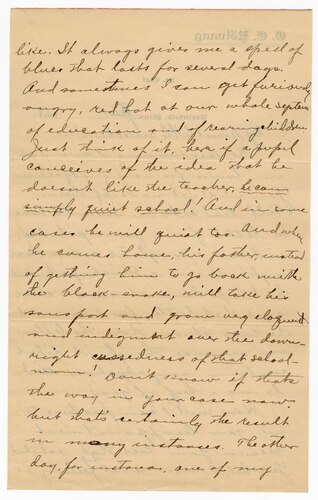 like. It always gives me a spell of
blues that lasts for several days.
And sometimes I can get furiously
angry, red hot at our whole system
of education and of rearing children.
Just think of it, here if a pupil
conceives of the idea that he
doesn't like the teacher, he can
simply quiet school! And in some
cases he will quiet too. And when
he comes home, his father, instead
of getting him to go back with
the black-snake, will take his
sons part and grow very eloquent
and indignant over the down-
right cussedness of that school-
mom! Don't know if thats
the way in your case now,
but that's certainly the result
in many instances. The other
day, for instance, one of my